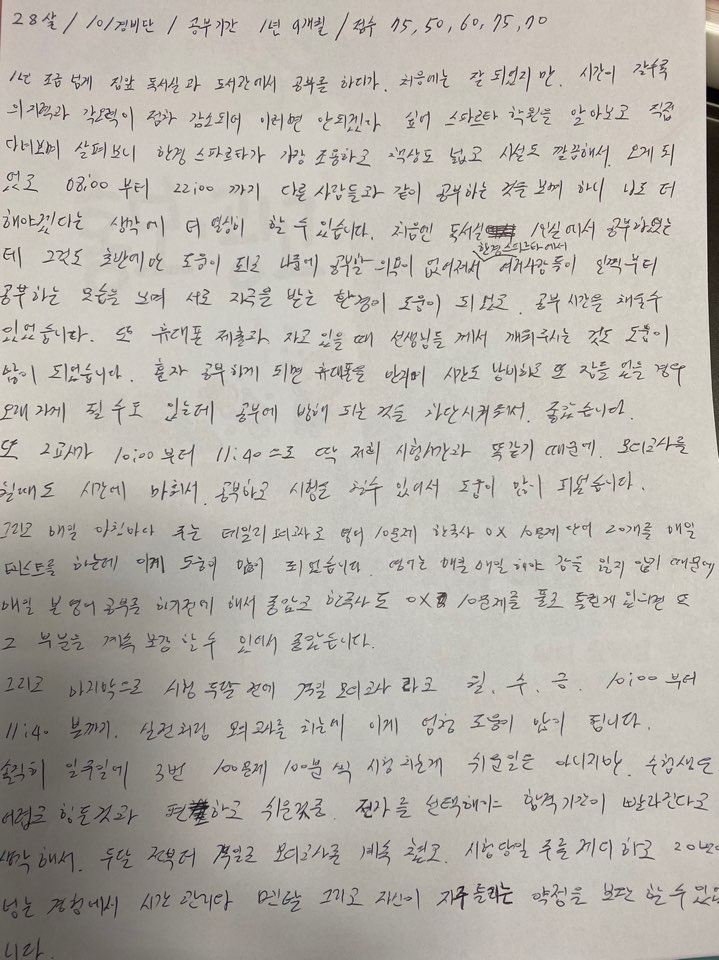 28살 / 101경비단 / 공부기간 1년 9개월 / 점수 75, 50, 60, 75, 70
1년 조금 넘게 집앞 독서실과 도서관에서 공부를 하다가. 처음에는 잘 되었지만. 시간이 갈수록
의지력과 각오력이 점차 감소되어 이러면 안되겠다 싶어 스파르타 학원을 알아보고 직접
다녀보며 살펴보니 한경 스파르타가 가장 조용하고 책상도 넓고 시설도 깔끔해서. 오게 되
었고 08:00 부터 22:00 까지 다른 사람들과 같이 공부하는 것을 보게 하니 나도 더
해야겠다는 생각에 더 열심히 할 수 있습니다. 처음엔 독서실 1인실에서 공부하였는
데 그것도 초반에만 도움이 되고 나중에 공부할 의욕이 없어져서 한경스파르타에서 여러사람들이 일찍부터
공부하는 모습을 보며 서로 자극을 받는 환경이 도움이 되었고. 공부시간을 채울수
있었습니다. 또 휴대폰 제출과 자고 있을 때 선생님들 께서 깨워주시는 것도 도움이
많이 되었습니다. 혼자 공부하게 되면 휴대폰을 만지며 시간도 낭비하고 또 잠들 었을 경우
오래 자게 될 수도 있는데 공부에 방해 되는 것을 차단시켜줘서. 좋았습니다.
또 2교시가 10:00 부터 11:40 으로 딱 저희 시험시간과 똑같기 때문에. 모의고사를
칠때도 시간에 맞춰서 공부하고 시험을 칠수 있어서 도움이 많이 되었습니다.
그리고 매일 아침마다 주는 데일리 페이퍼로 영어 10문제 한국사 OX 10문제 단어 20개를 매일
테스트를 하는데 이게 도움이 많이 되었습니다. 영어는 매일 매일 해야 감을 잃지 않기 때문에
매일 본 영어 공부를 하기전에 해서 좋았고 한국사도 OX 10문제를 풀고 틀린게 있으면 또
그 부분을 계속 보강 할 수 있어서 좋았습니다.
그리고 마지막으로 시험 두달 전에 격일 모의고사 라고 월, 수, 금. 10:00 부터
11:40 분까지. 실전처럼 모의고사를 치는데 이게 엄청 도움이 많이 됩니다.
솔직히 일주일에 3번 100문제 100분 씩 시험 치는게 쉬운일은 아니지만. 수험생은
어렵고 힘든것과 편하고 쉬운것중. 전자를 선택해야 합격기간이 빨라진다고
생각해서. 두달 전부터 격일로 모의고사를 계속 쳤고. 시험당일 주를 제외 하고 20번이
넘는 경험에서 시간 관리와 멘탈 그리고 자신이 자주 틀리는 약점을 보완 할 수 있었습
니다.